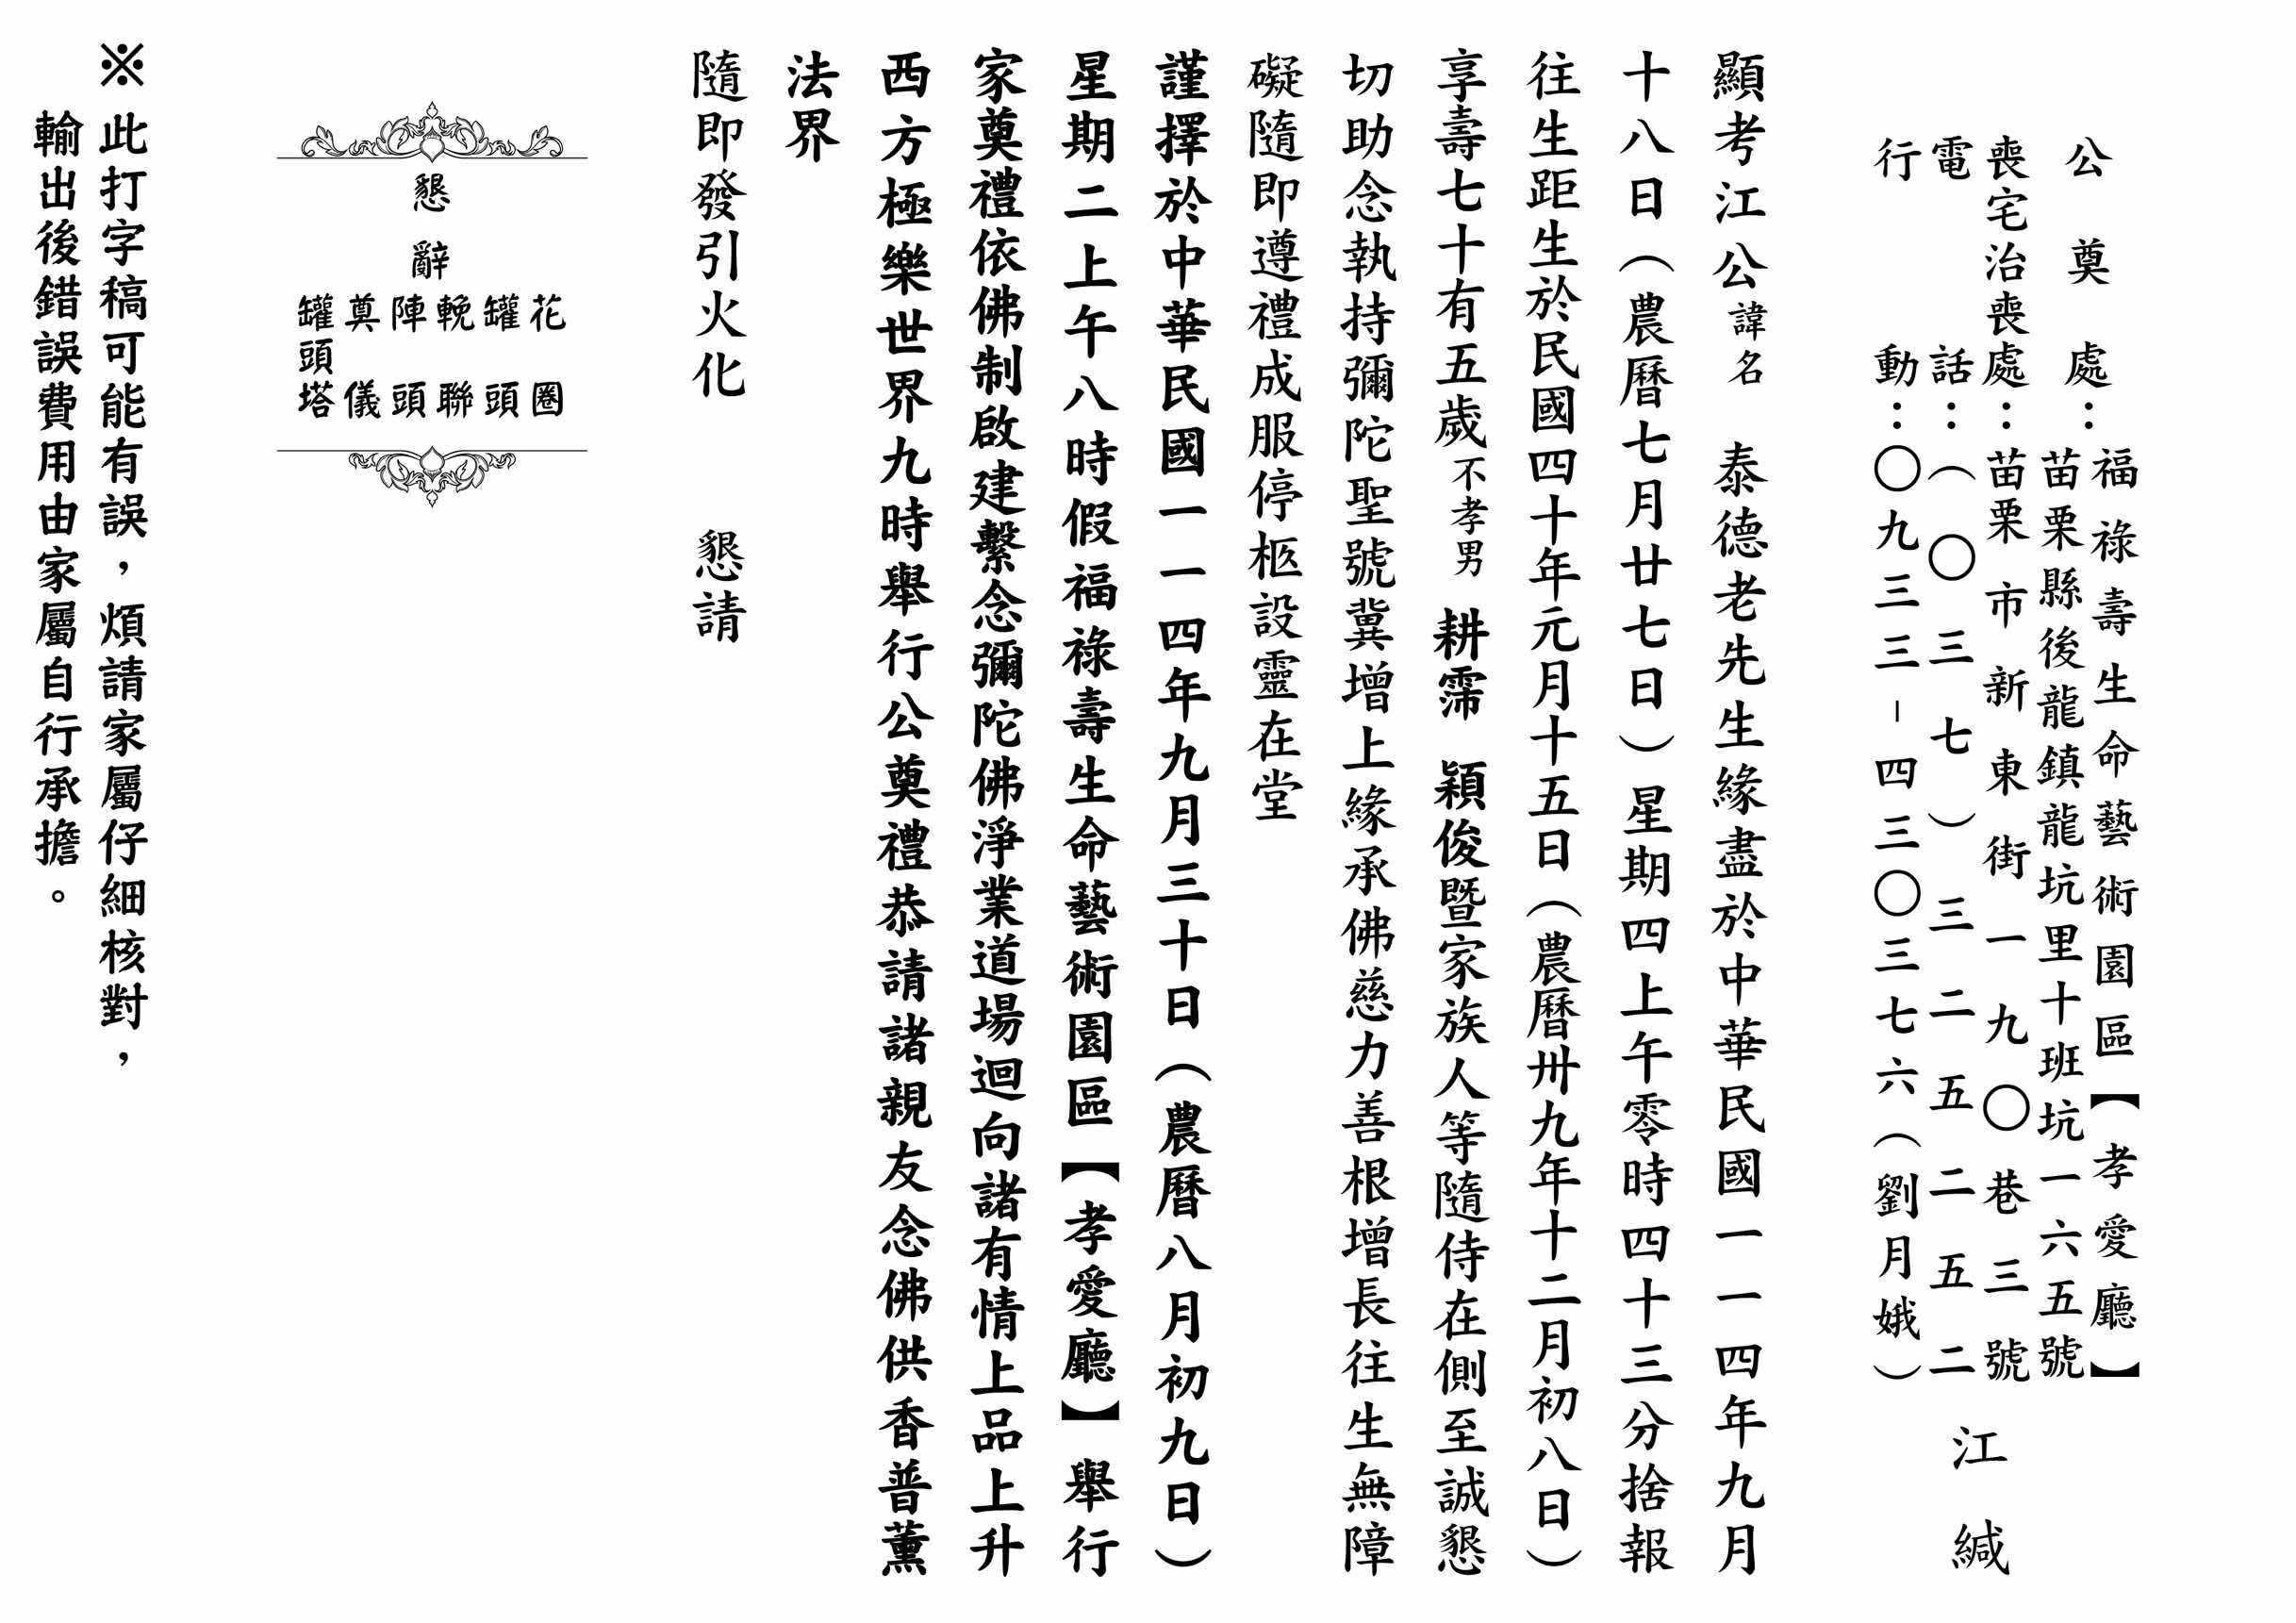 公奠處：福祿壽生命藝術園區【孝愛廳】
苗栗縣後龍鎮龍坑里十班坑一六五號
喪宅治喪處：苗栗市新東街一九〇巷三號
電話：（〇三七）三二五二五二
行動：〇九三三-四三〇三七六（劉月娥）
江緘
顯考江公諱名　泰德老先生緣盡於中華民國一一四年九月
十八日（農曆七月廿七日）星期四上午零時四十三分捨報
往生距生於民國四十年元月十五日（農曆卅九年十二月初八日）
享壽七十有五歲不孝男　耕霈　穎俊暨家族人等隨侍在側至誠懇
切助念執持彌陀聖號冀增上緣承佛慈力善根增長往生無障
礙隨即遵禮成服停柩設靈在堂
謹擇於中華民國一一四年九月三十日（農曆八月初九日）
星期二上午八時假福祿壽生命藝術園區【孝愛廳】舉行
家奠禮依佛制啟建繫念彌陀佛淨業道場迴向諸有情上品上升
西方極樂世界九時舉行公奠禮恭請諸親友念佛供香普薰
法界
隨即發引火化　　懇請
懇辭
花圈
罐頭
輓聯
陣頭
奠儀
罐頭塔
※此打字稿可能有誤，煩請家屬仔細核對，
輸出後錯誤費用由家屬自行承擔。